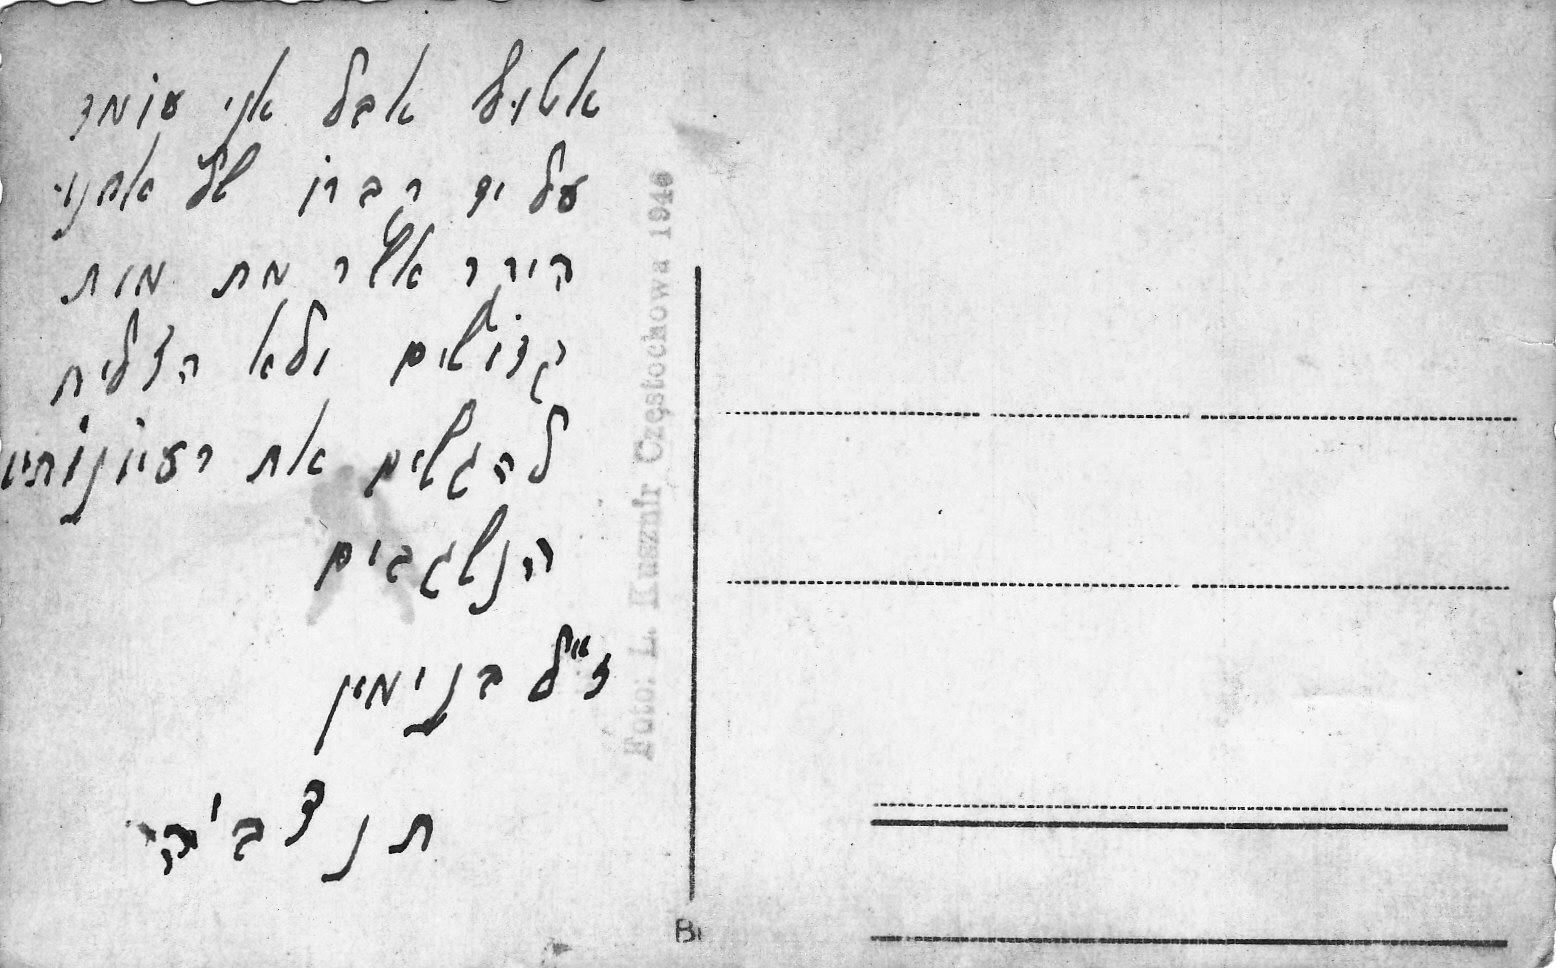 אטויל אבל אני עומד
על יד הברו של אחנו
היקר אשר מת מות
קדושים ולא הצליח
להגשים את רעיונותיו
הנשגבים
ז"ל בנימין
ת נ צ ב ה
Foto: L. Kusznir Częstochowa 1946
Bi